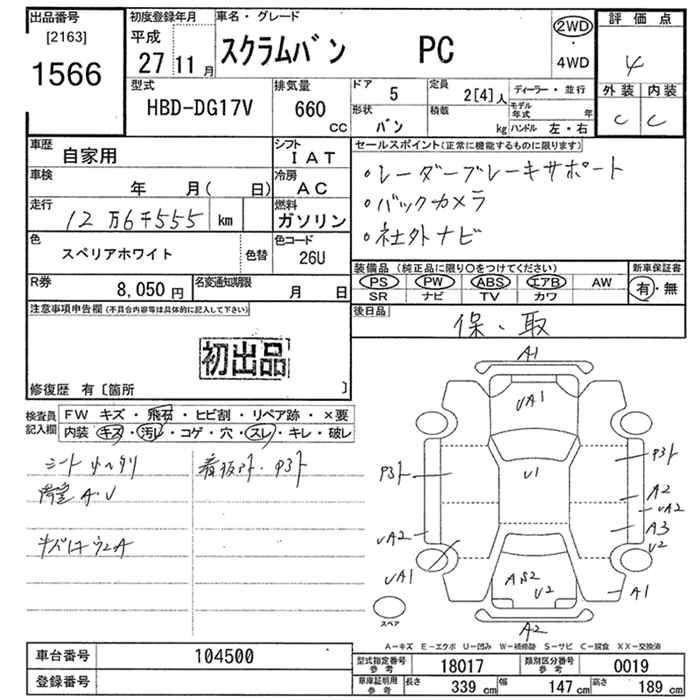 出品番号
[2163]
1566
初度登録年月
平成
27 11 月
車名・グレード
スクラムバン PC
2WD
・
4WD
評価点
4
外装 内装
C C
型式
HBD-DG17V
排気量
660 CC
ドア 5
定員 2[4]人
ディーラー・並行
形状 バン
積載 kg
モデル年式 年
ハンドル 左・右
車歴 自家用
シフト IAT
車検 年 月( 日)
冷房 AC
走行 12万6千555 km
燃料 ガソリン
色 スペリアホワイト
色替
色コード 26U
R券 8,050円
名変通知期限 月 日
セールスポイント(正常に機能するものに限ります)
・レーダーブレーキサポート
・バックカメラ
・社外ナビ
装備品 (純正品に限り○をつけてください)
PS PW ABS エアB AW
SR ナビ TV カワ
新車保証書
有・無
後日品
保・取
注意事項申告欄(不具合内容等は具体的に記入して下さい)
初出品
修復歴 有〔箇所 〕
検査員記入欄
FW キズ・飛石・ヒビ割・リペア跡・×要
内装 キズ・汚レ・コゲ・穴・スレ・キレ・破レ
シート
看板アト・P3ト
A1
UA1
U1
P3ト
P3ト
A2
UA2
A3
U2
UA2
UA1
U2
A1
A2
スペア
A-キズ E-エクボ U-凹み W-補修跡 S-サビ C-腐食 XX-交換済
車台番号 104500
登録番号
型式指定番号 参考 18017
類別区分番号 参考 0019
車庫証明用 参考 長さ 339 cm 幅 147 cm 高さ 189 cm